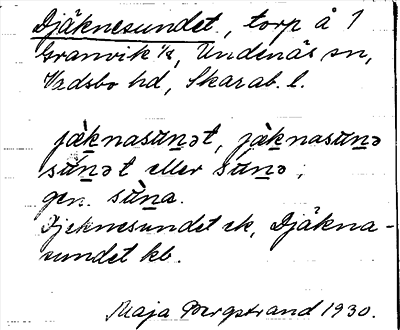 Djäknesundet, torp å 1
Granvik ¼, Undenäs sn,
Vadsbo hd, Skarab. l.
jæknasunət, jæknasunə
sunət eller sunə;
gen. sùna.
Djeknesundet ek, Djäkna-
sundet kb.
Maja Bergstrand 1930.